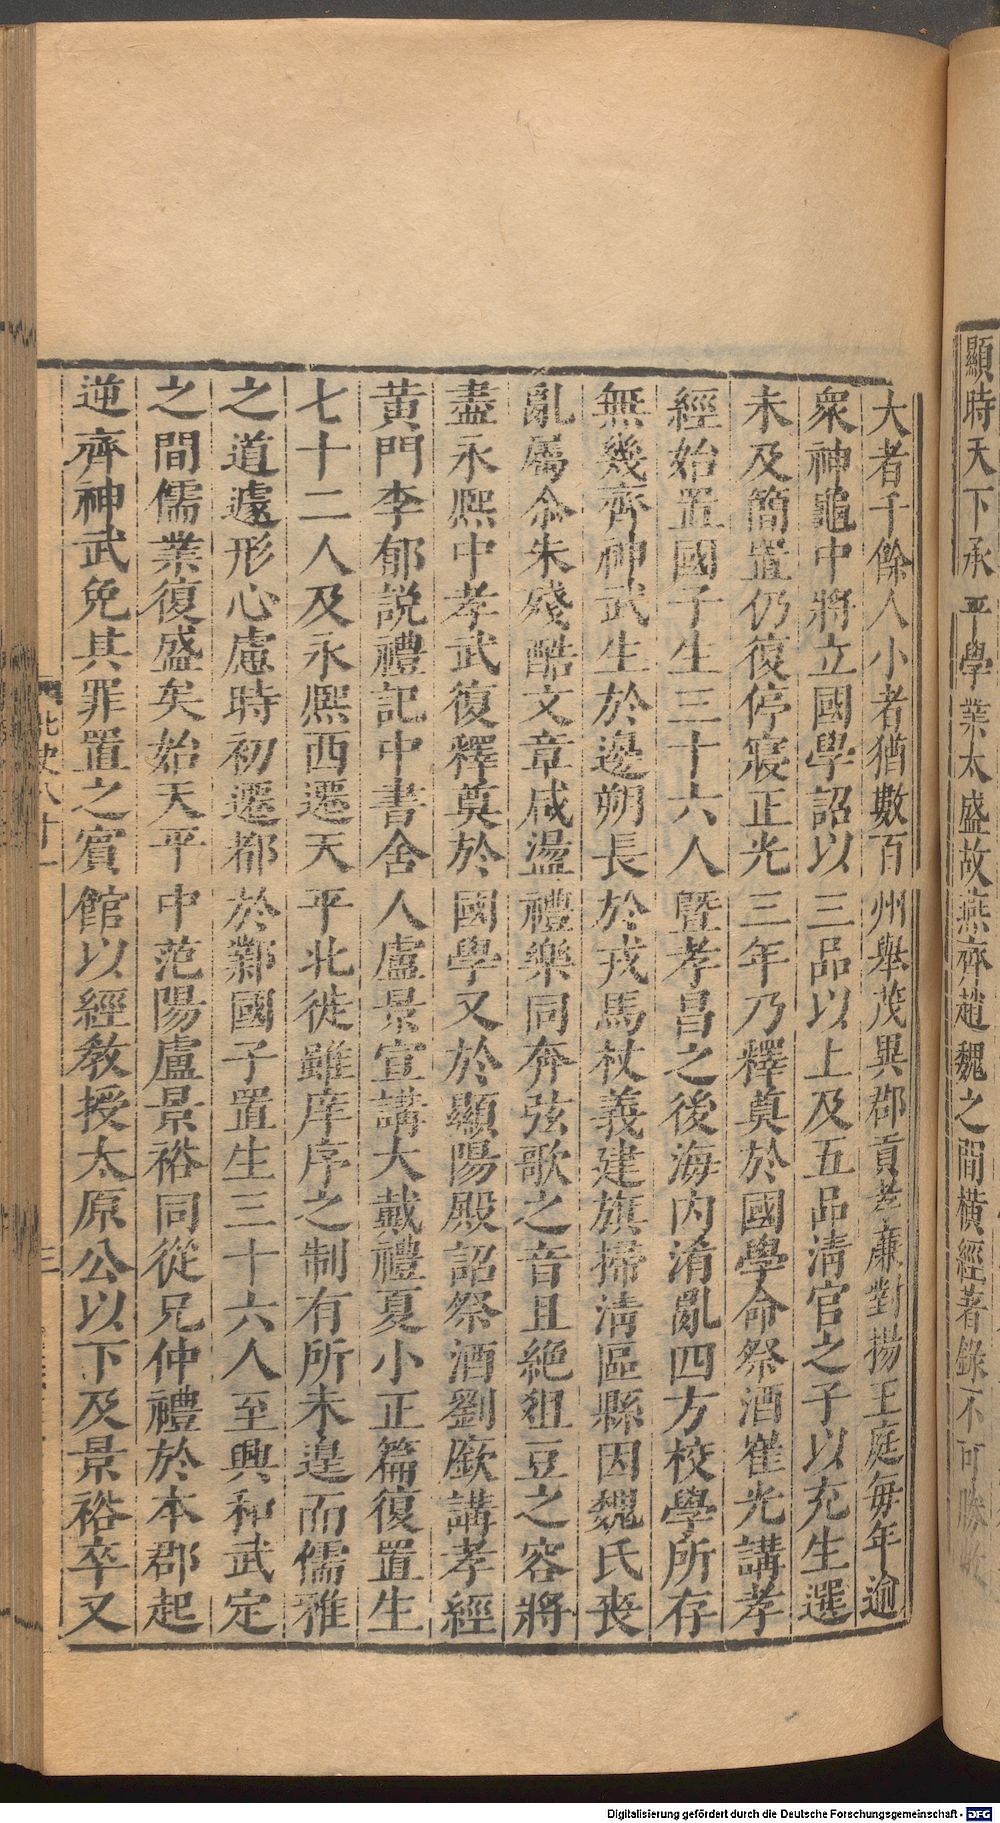 顯時天下承平學業太盛故燕齊趙魏之間橫經著錄不可勝
大者千餘人小者猶數百州舉茂異郡貢孝廉對揚王庭每年逾
衆神龜中將立國學詔以三品以上及五品淸官之子以充生選
未及簡置仍復停寢正光三年乃釋奠於國學命祭酒崔光講孝
經始置國子生三十六人曁孝昌之後海內淆亂四方校學所存
無幾齊神武生於邊朔長於戎馬杖義建旗掃淸區縣因魏氏喪
亂屬尒朱殘酷文章咸盪禮樂同奔弦歌之音且絶俎豆之容將
盡永熈中孝武復釋奠於國學又於顯陽殿詔祭酒劉廞講孝經
黃門李郁說禮記中書舍人盧景宣講大戴禮夏小正篇復置生
七十二人及永熈西遷天平北徙雖庠序之制有所未遑而儒雅
之道遽形心慮時初遷都於鄴國子置生三十六人至興和武定
之間儒業復盛矣始天平中范陽盧景裕同從兄仲禮於本郡起
逆齊神武免其罪置之賓館以經敎授太原公以下及景裕卒又
北史八十一 三
Digitalisierung gefördert durch die Deutsche Forschungsgemeinschaft - DFG